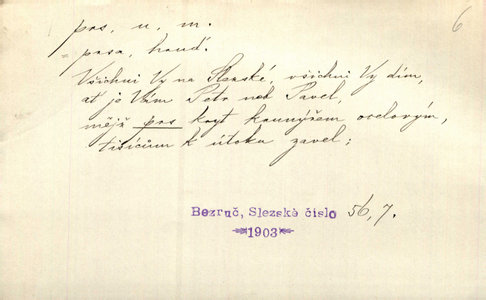 6
prs, u, m.
= prsa, hruď.
Všichni Vy na Slezské, všichni Vy dím,
ať je Vám Petr neb Pavel,
mějž prs kryt krunýřem ocelovým,
tisícům k útoku zavel;
Bezruč, Slezské číslo 56, 7.
1903